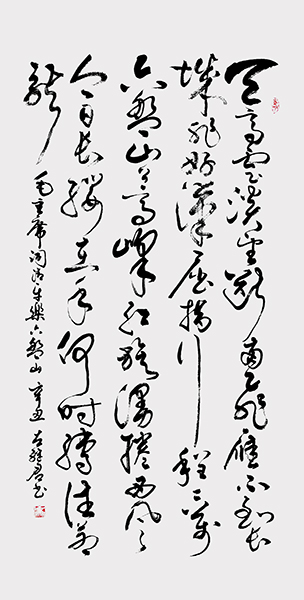 天高雲淡望斷南飛雁不到长
城非好漢屈指行程二萬
六盤山上高峰红旗漫捲西风
今日长缨在手何时缚住苍
龙
毛主席词清平樂六盤山 辛丑 书